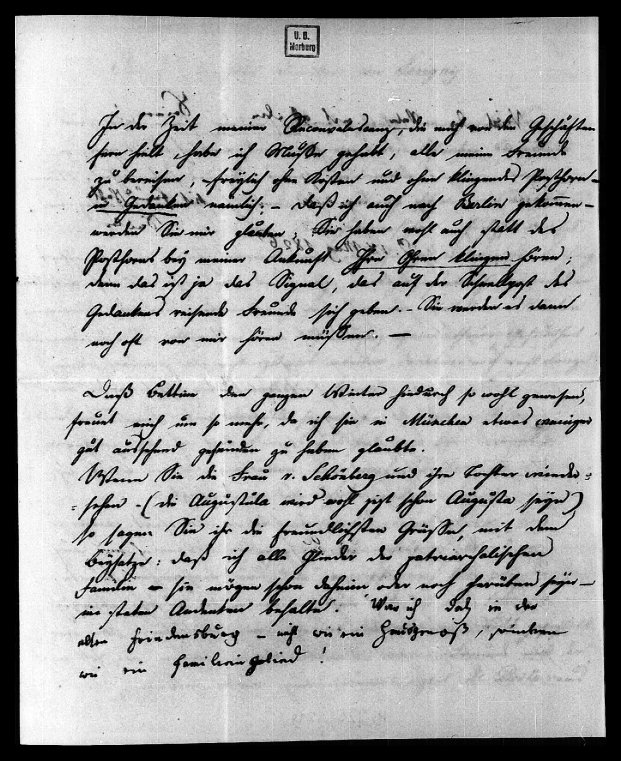 U. B.
Marburg
In der Zeit meiner Reconvalescenz, die mich von den Geschäften
fern hält, habe ich Muße gehabt, alle meine Freunde
zu bereisen, freylich ohne Kosten und ohne klingendes Posthorn –
in Gedanken nämlich; – daß ich auch nach Berlin gekommen –
werden Sie mir glauben. Sie haben wohl auch statt des
Posthorns bey meiner Ankunft Ihre Ohren klingen hören;
denn das ist ja das Signal, das auf der Schnellpost des
Gedankens reisende Freunde sich geben. – Sie werden es dann
noch oft von mir hören müssen. –
Daß Bettine den ganzen Winter hindurch so wohl gewesen,
freuet mich um so mehr, da ich sie in München etwas weniger
gut aussehend gefunden zu haben glaubte.
Wenn Sie die Frau v. Schönberg und ihre Tochter wieder-
sehen – (die Augustula wird wohl jezt schon Augusta seyn)
so sagen Sie ihr die freundlichsten Grüsse, mit dem
Beysatze: daß ich alle Glieder der patriarchalischen
Familie – sie mögen schon daheim oder noch hierüben seyn –
in stetem Andenken behalte. War ich doch in der
alten Friedensburg – nicht wie ein Hausgenoß, sondern
wie ein Familienglied!